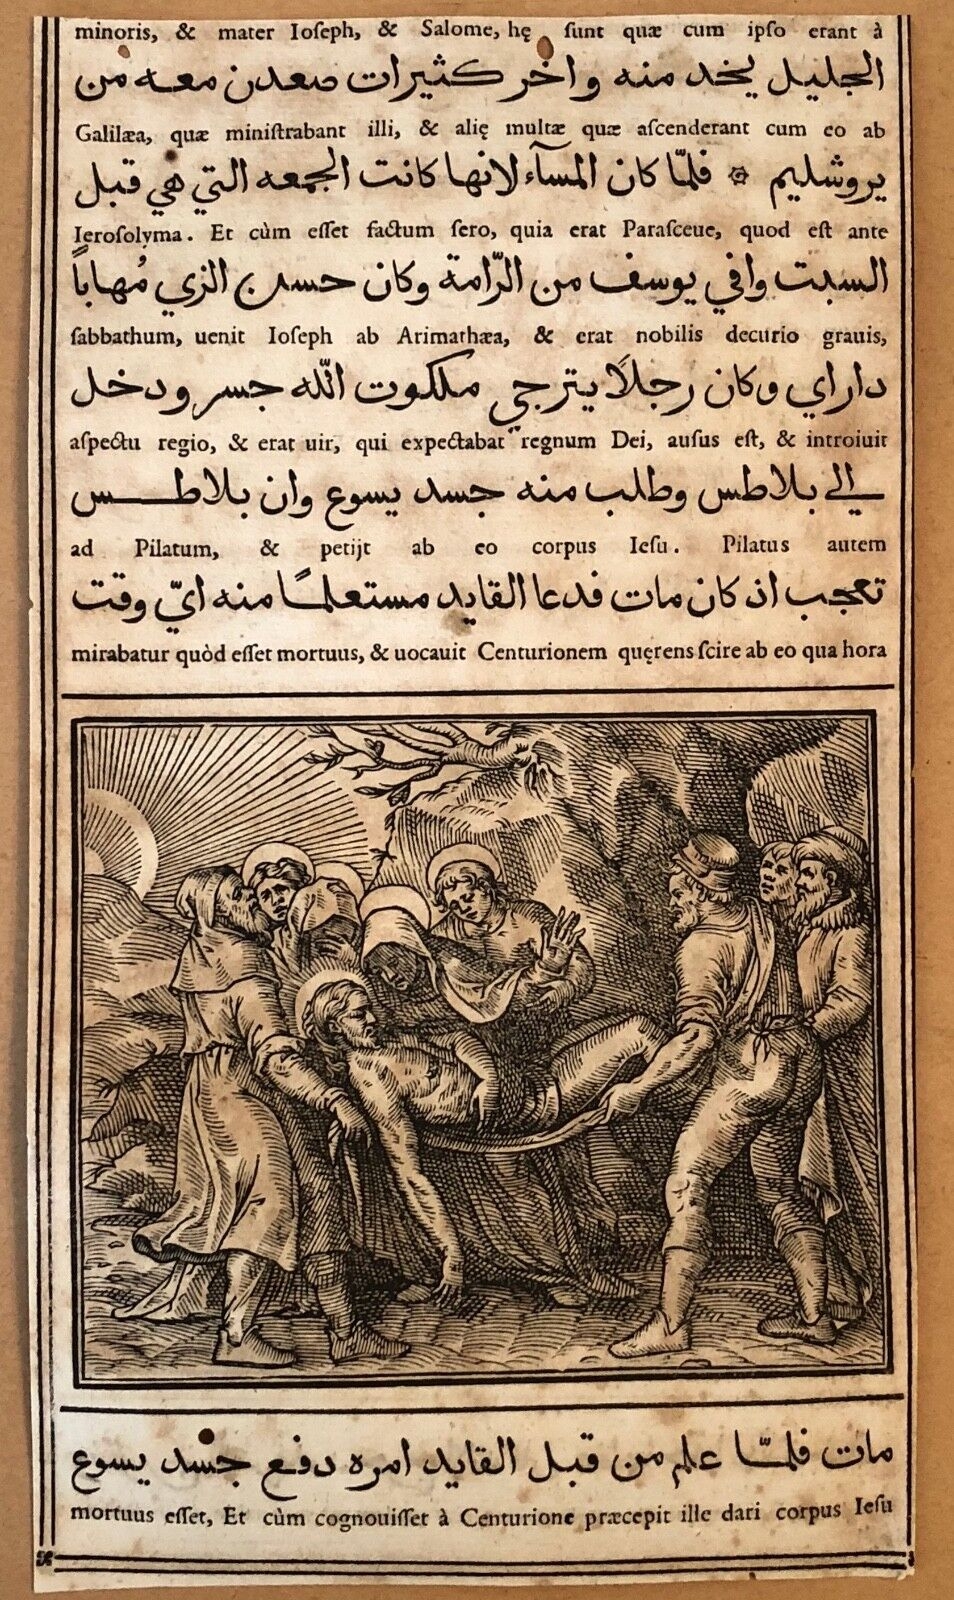 minoris, & mater Ioſeph, & Salome, hę ſunt quæ cum ipſo erant à
الجليل يخد منه واخر كثيرات صعدن معه من
Galilæa, quæ miniſtrabant illi, & alię multæ quæ aſcenderant cum eo ab
يروشليم ۞ فلمّا كان المسآء لانها كانت الجمعه التي هي قبل
Ieroſolyma. Et cùm eſſet factum ſero, quia erat Paraſceue, quod eſt ante
السبت وافي يوسف من الرّامة وكان حسن الزي مُهاباً
ſabbathum, uenit Ioſeph ab Arimathæa, & erat nobilis decurio grauis,
داراي وكان رجلاً يترجي ملكوت الله جسر ودخل
aſpectu regio, & erat uir, qui expectabat regnum Dei, auſus eſt, & introiuit
الي بلاطس وطلب منه جسد يسوع وان بلاطس
ad Pilatum, & petijt ab eo corpus Ieſu. Pilatus autem
تعجب ان كان مات فدعا القايد مستعلماً منه ايّ وقت
mirabatur quòd eſſet mortuus, & uocauit Centurionem quęrens ſcire ab eo qua hora
مات فلمّا علم من قبل القايد امره دفع جسد يسوع
mortuus eſſet, Et cùm cognouiſſet à Centurione præcepit ille dari corpus Ieſu